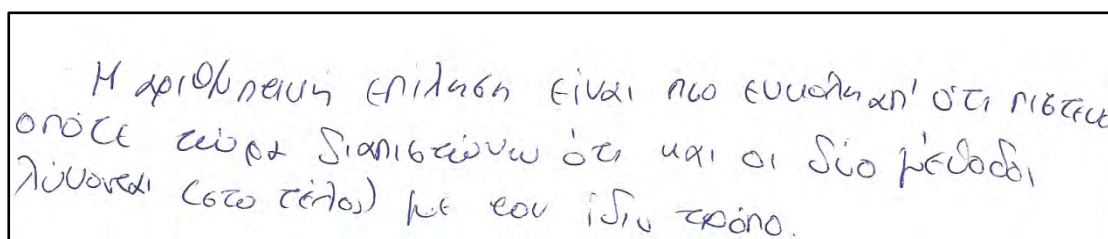 Η αριθμητική επίλυση είναι πιο εύκολη απ' ότι πιστευα
οπότε τώρα διαπιστώνω ότι και οι δύο μέθοδοι
λύνονται (στο τέλος) με τον ίδιο τρόπο.